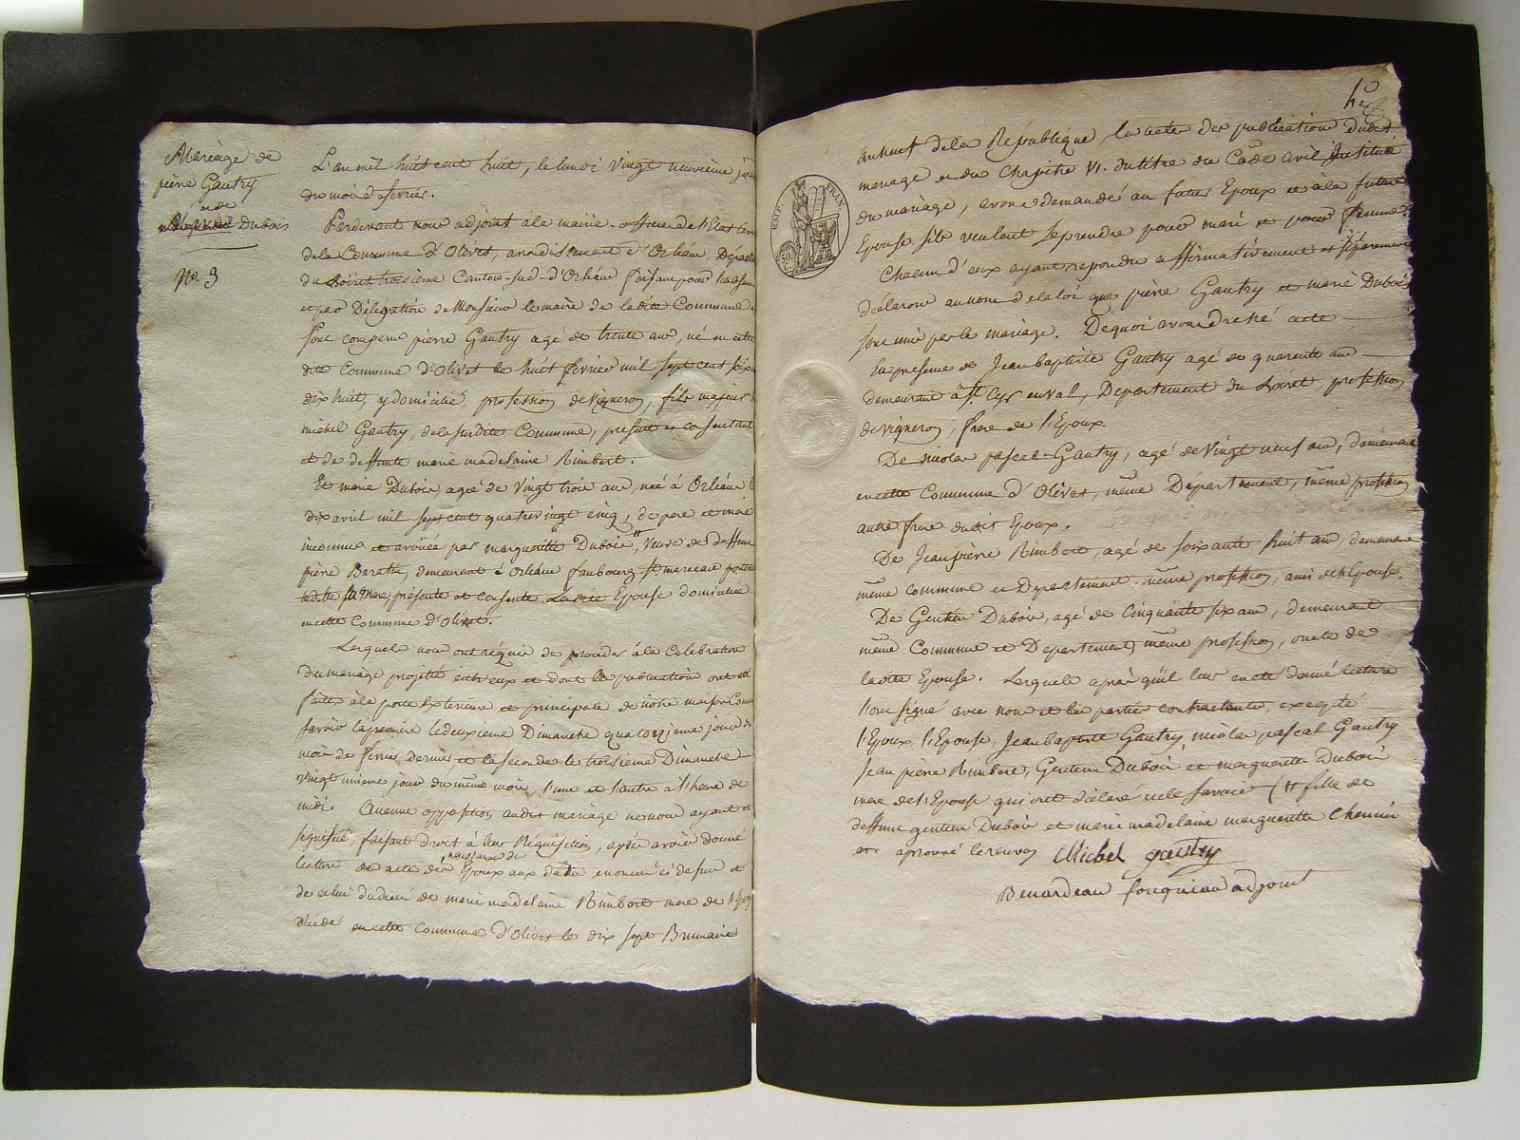 Mariage de
pierre Gautry
et de
Dubois
No. 3
L'an mil huit cent huit, le lundi vingt neuvième jour
du mois de fevrier.
Pardevant nous adjoint a la mairie officier de l'Etat Civil
de la Commune d'Olivet, arrondissement d'Orléans, Départem
du Loiret troisieme Canton-sud-d'Orléans faisant pour l'absence
et par Délégation de Monsieur le maire de ladite Commune
sont comparus pierre Gautry agé de trente ans, né en cette
dite Commune d'Olivet le huit fevrier mil sept cent soix
dix huit, y domicilié profession de vigneron, fils majeur
michel Gautry, de la susdite Commune, present et consentant
et de deffunte marie madelaine Rimbert.
Et marie Dubois, agée de vingt trois ans, née à Orléans l
dix avril mil sept cent quatre vingt cinq, de pere et mere
inconnus et avouée par marguerite Dubois, veuve de deffunt
pierre demeurant à Orléans faubourg St marceau
mere présente et consente la dite Epouse domiciliée
en cette Commune d'Olivet.
Lesquels nous ont réquis de procéder à la Célébration
du mariage projetté entre eux et dont les publications ont été
faites à la porte Exterieure et principale de notre maison Com
savoir la premiere le deuxieme Dimanche quatorzieme jour du
mois de fevrier dernier et la seconde le troisieme Dimanche
vingt unieme jour du même mois, l'une et l'autre à l'heure de
midi. Aucune opposition audit mariage ne nous ayant été
signifiée faisant droit à leur Réquisition, après avoir donné
lecture des actes de naissance des Epoux aux dates enoncées dessus et
de celui du décès de marie madelaine Rimbert mere de l'Epoux
décédée en cette Commune d'Olivet le dix sept Brumaire
40
EMP. FRAN.
an neuf de la République, les actes des publications dudit
mariage et du Chapitre VI. du titre du Code civil Intitulé
du mariage, avons demandé au futur Epoux et à la future
Epouse s'ils veulent se prendre pour mari et pour femme.
Chacun d'eux ayant repondu affirmativement et séparement
déclarons au nom de la loi que pierre Gautry et marie Dubois
sont unis par le mariage. De quoi avons dressé acte
en présence de Jean baptiste Gautry agé de quarente ans
demeurant à St Cyr en Val, Département du Loiret profession
de vigneron, frere de l'Epoux.
De nicolas pascal Gautry, agé de vingt neuf ans, demeurant
en cette Commune d'Olivet, même Département, même profession
autre frere dudit Epoux.
De Jean pierre Rimbert, agé de soixante huit ans, demeurant
même commune et Departement. même profession, ami de l'Epouse.
De Gentien Dubois, agé de Cinquante six ans, demeurant
même Commune et Departement même profession, oncle de
ladite Epouse. Lesquels après qu'il leur en été donné lecture
l'ont signé avec nous et les parties contractantes, excepté
l'Epoux, l'Epouse, Jean baptiste Gautry, nicolas pascal Gautry
Jean pierre Rimbert, Gentien Dubois et marguerite Dubois
mere de l'Epouse qui ont déclaré ne le savoir (" fille de
deffunt gentien Dubois et marie madelaine marguerite
approuvé le renvoy Michel gautry
Benardeau adjoint